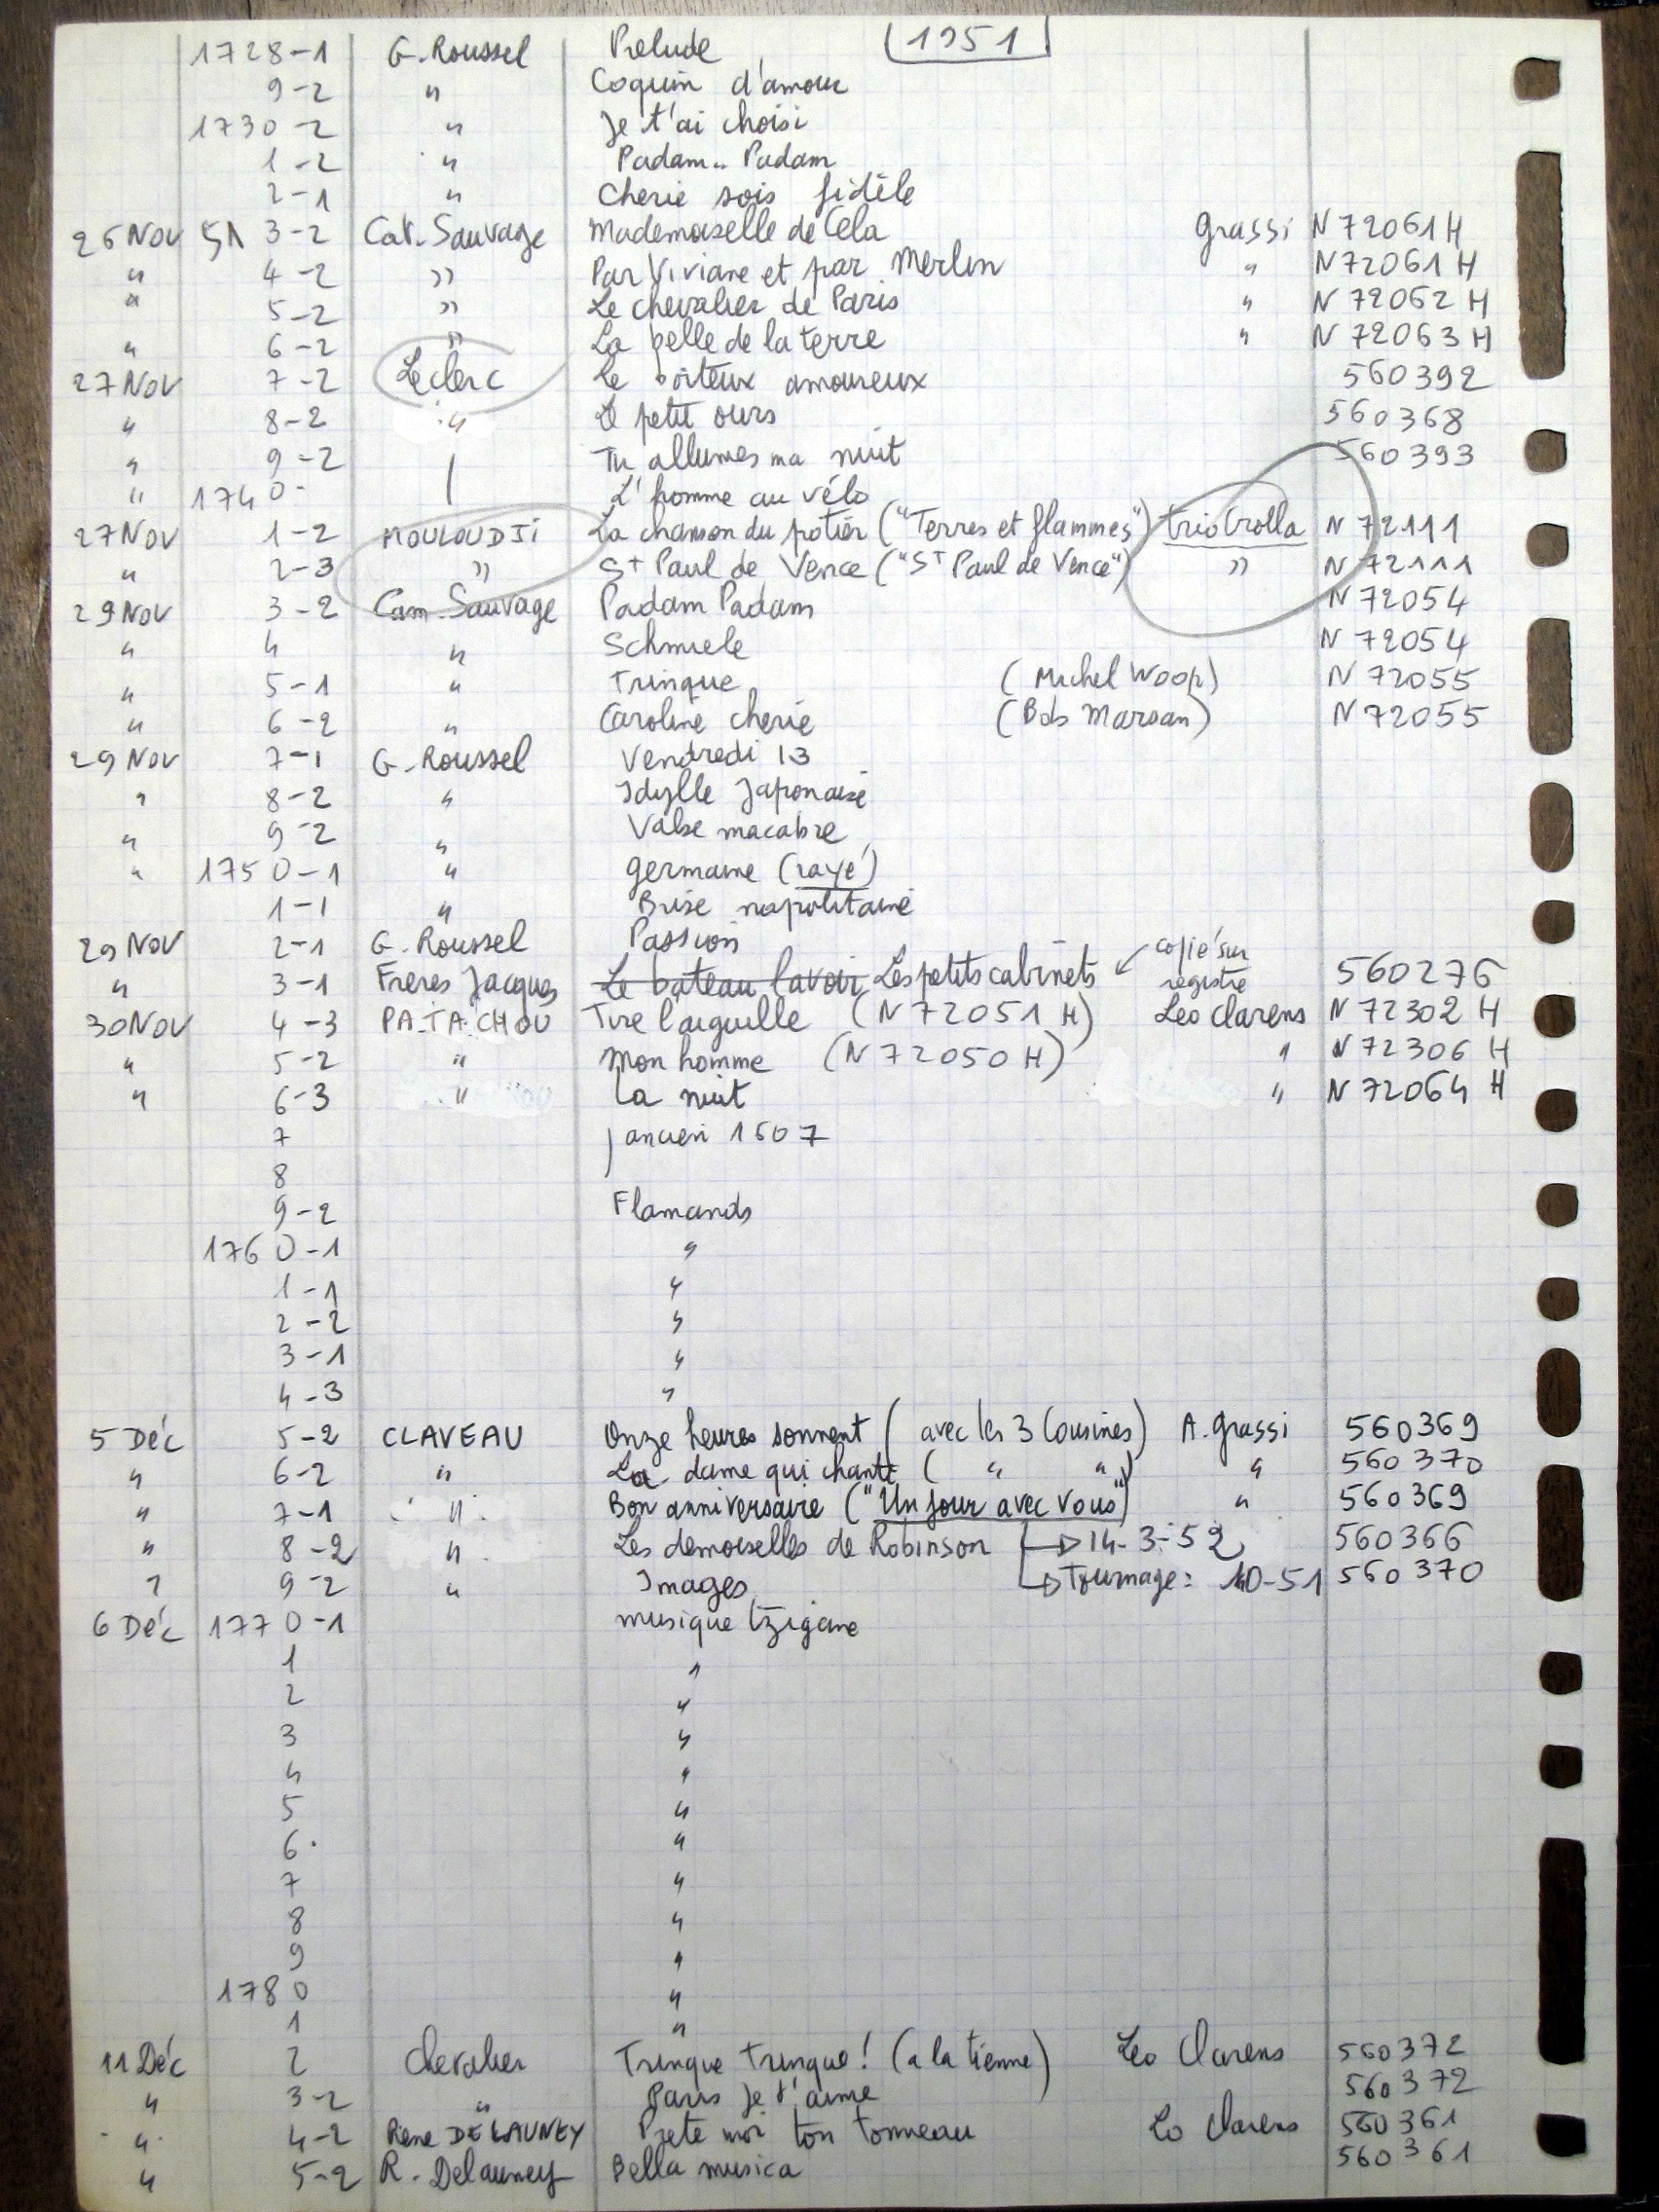 1728-1 G. Roussel Prelude 1951
9-2 " Coquin d'amour
1730-2 " Je t'ai choisi
1-2 " Padam.. Padam
2-1 " Cherie sois fidèle
26 NOV 51 3-2 Cat. Sauvage Mademoiselle de Cela Grassi N 72061 H
" 4-2 " Par Viviane et par Merlin " N 72061 H
" 5-2 " Le chevalier de Paris " N 72062 H
" 6-2 " La belle de la terre " N 72063 H
27 NOV 7-2 Leclerc Le boiteux amoureux 560392
" 8-2 " Le petit ours 560368
" 9-2 | Tu allumes ma nuit 560393
" 1740- L'homme au vélo
27 NOV 1-2 MOULOUDJi La chanson du potier ("Terres et flammes") trio Crolla N 72111
" 2-3 " St Paul de Vence ("St Paul de Vence") " N 72111
29 NOV 3-2 Cam. Sauvage Padam Padam N 72054
" 4 " Schmiele N 72054
" 5-1 " Trinque (Michel Woop) N 72055
" 6-2 " Caroline cherie (Bob Marsan) N 72055
29 NOV 7-1 G. Roussel Vendredi 13
" 8-2 " Idylle Japonaise
" 9-2 " Valse macabre
" 1750-1 " Germaine (rayé)
1-1 " Brise napolitaine
29 NOV 2-1 G. Roussel Passion
" 3-1 Freres Jacques Le bateau lavoir Les petits cabinets ↙ copié sur registre 560276
30 NOV 4-3 PA-TA-CHOU Tire l'aiguille (N 72051 H) Leo Clarens N 72302 H
" 5-2 " Mon homme (N 72050 H) " N 72306 H
" 6-3 " La nuit " N 72064 H
7 janvier 1607
8
9-2 Flamands
1760-1 "
1-1 "
2-2 "
3-1 "
4-3 "
5 Déc 5-2 CLAVEAU Onze heures sonnent (avec les 3 Cousines) A. Grassi 560369
" 6-2 " La dame qui chante ( " " ) " 560370
" 7-1 " Bon anniversaire ("Un jour avec vous") " 560369
" 8-2 " Les demoiselles de Robinson → 14-3-52 560366
" 9-2 " Images → Tournage: 10-51 560370
6 Déc 1770-1 musique tzigane
1 "
2 "
3 "
4 "
5 "
6. "
7 "
8 "
9 "
1780 "
1 "
11 Déc 2 Chevalier Trinque trinque! (a la tienne) Leo Clarens 560372
" 3-2 " Paris Je t'aime 560372
" 4-2 Rene DELAUNEY Prete moi ton tonneau Lo Clarens 560361
" 5-2 R. Delauney Bella musica 560361